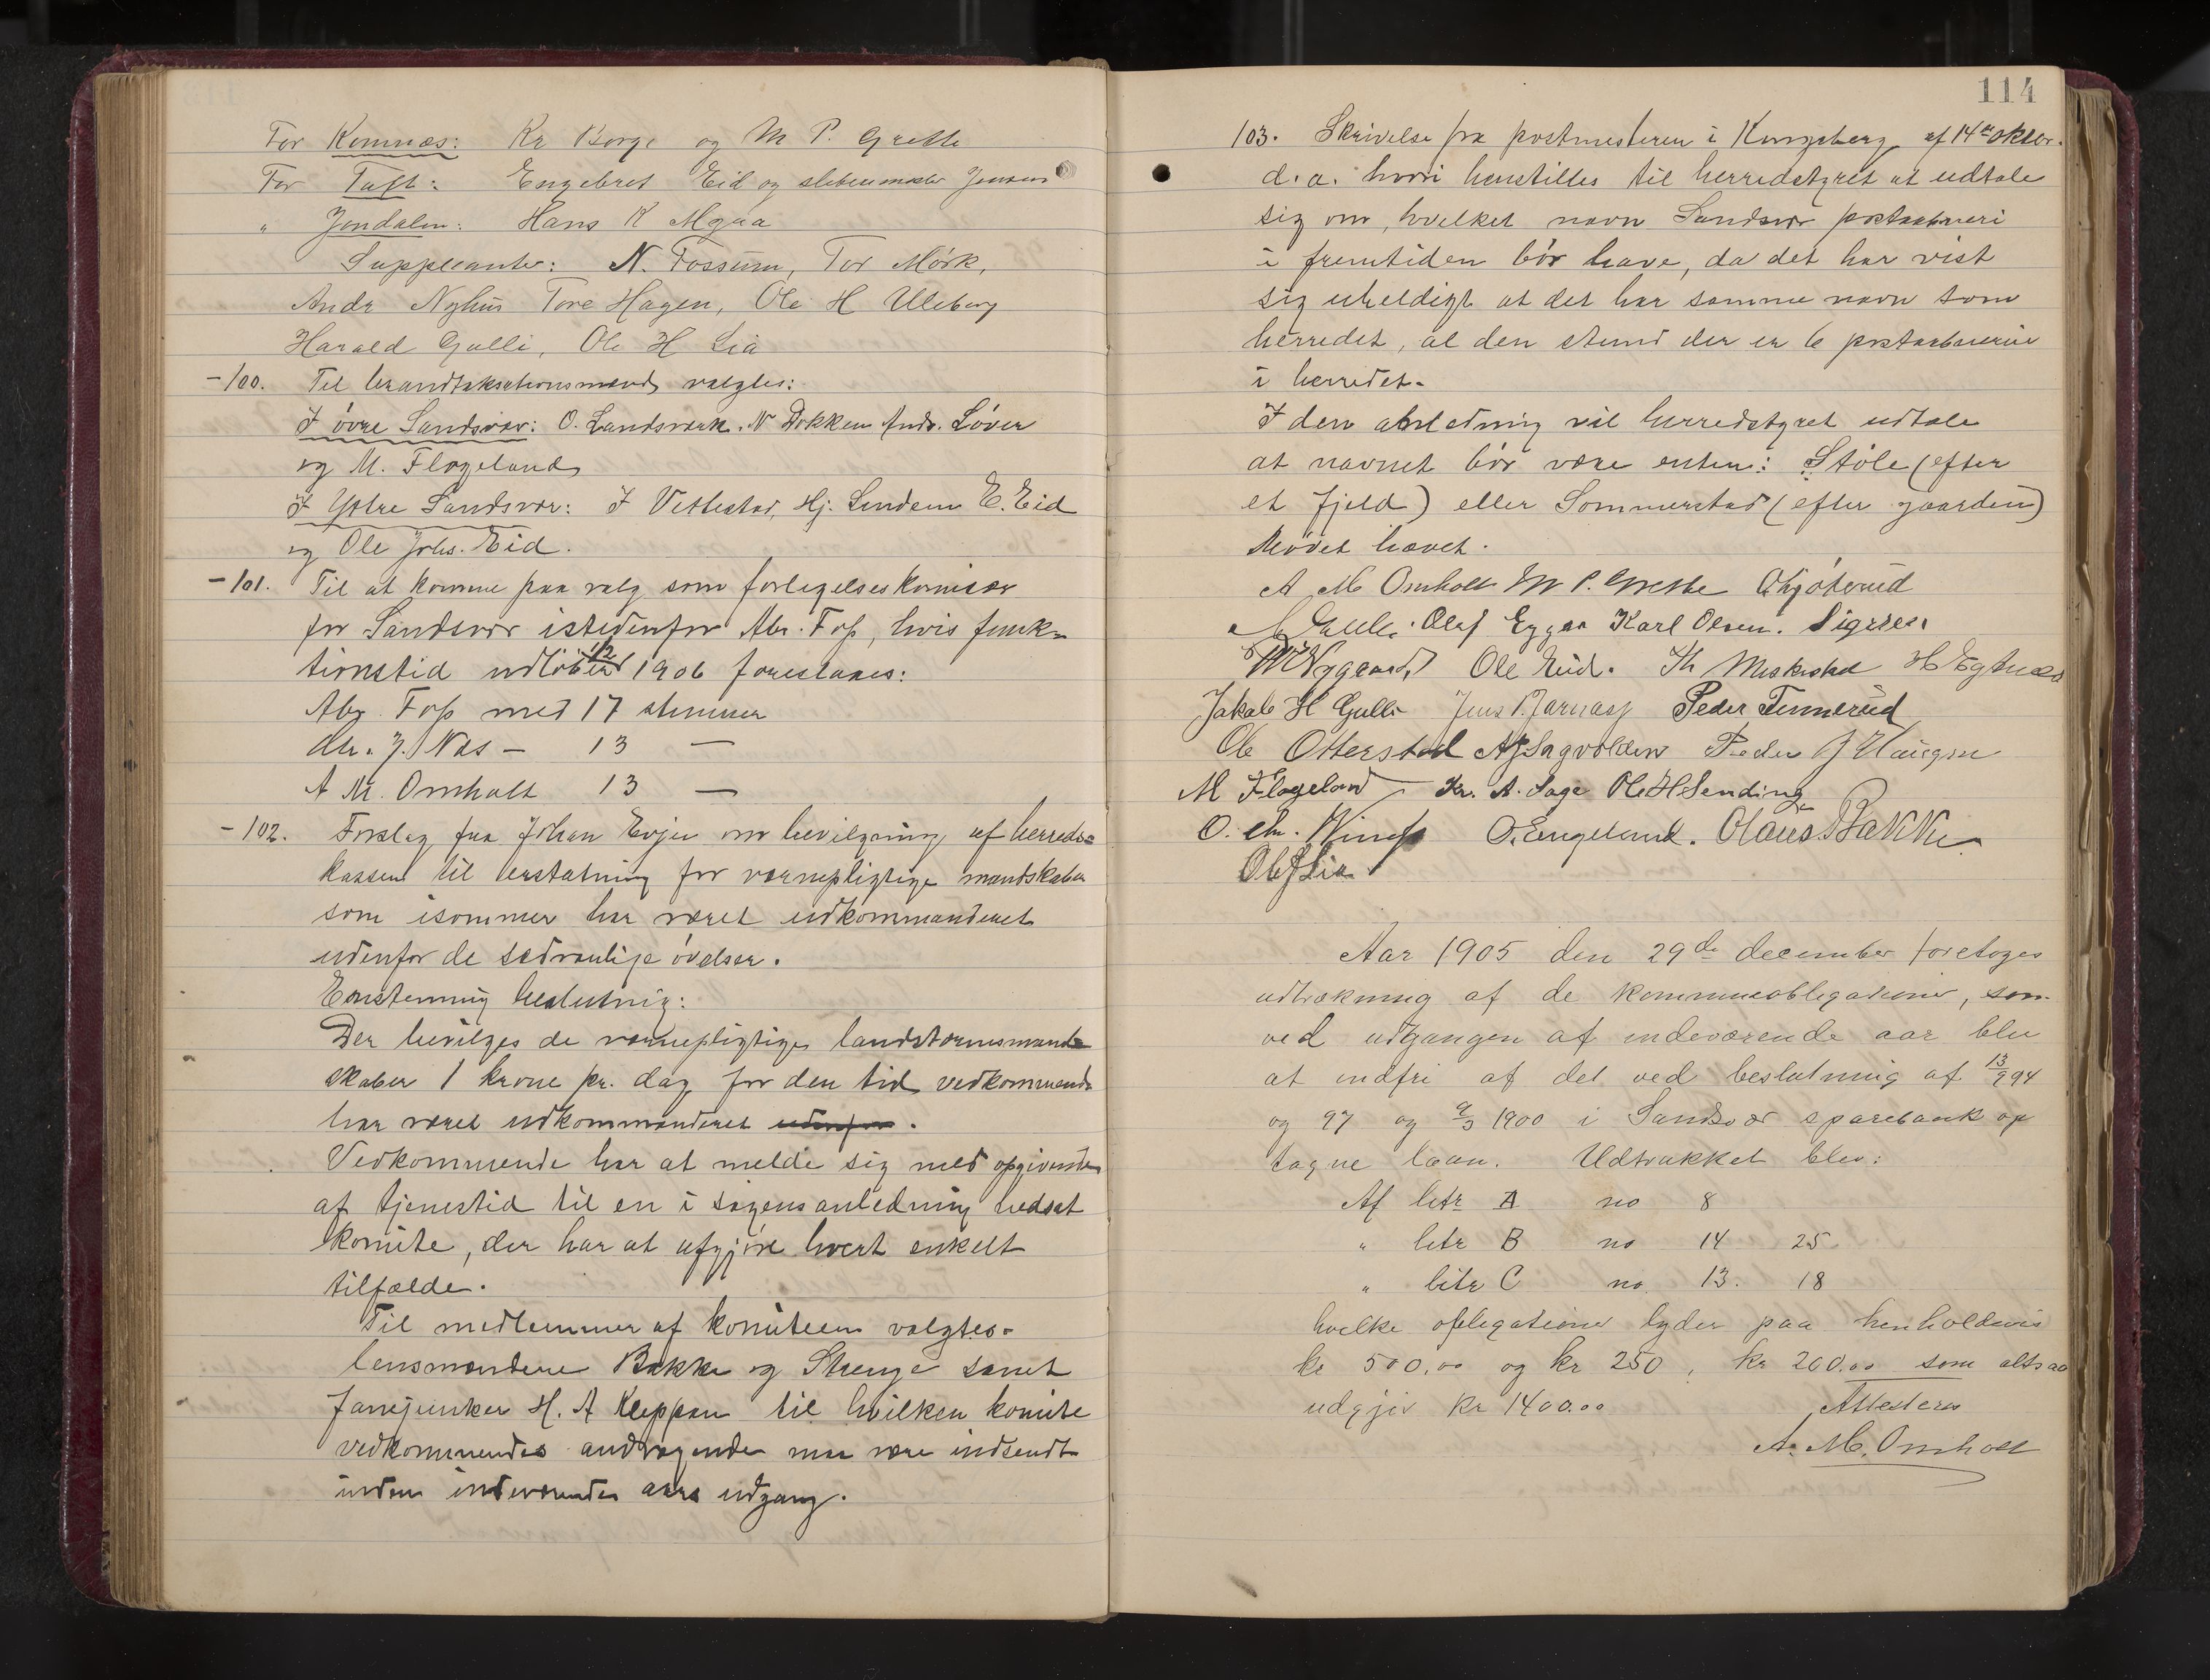 For Komnæs: Kr Borge og M P. Grette
For Tuft: Engebret Eid og Jensen
" Jondalen: Hans K Mgaa
Suppleanter: N. Fossum, Tor Mørk,
Andr Nyhus Tore Hagen, Ole H Uleberg
Harald Gulli, Ole H Lia
- 100. Til brandtaksationsmænd valgtes:
I øvre Sandsvær: O. Landsværk. N Dokken Andr. Løver
og M. Flageland
I Ytre Sandsvær: I Vettestad, Hj. Lindem E. Eid
og Ole Johs. Eid.
- 101. Til at komme paa valg som forligelseskomisær
for Sandsvær istedenfor Abr. Foss, hvis funk-
tionstid udløber 1906 foreslaaes:
Abr. Foss med 17 stemmer
Chr. J. Næs - 13 —
A M. Omholt 13 —
- 102. Forslag fra Johan Evju om bevilgning af herreds-
kassen til erstatning for værnepligtige mandskaber
som isommer har været udkommanderet
udenfor de sædvanlige øvelser.
Enstemmig beslutning:
Der bevilges de værnepligtige landstormsmand-
skaber 1 krone pr. dag for den tid vedkommende
har været udkommanderet udenfor.
Vedkommende har at melde sig med opgivende
af tjenestid til en i sagens anledning nedsat
komite, der har at afgjøre hvert enkelt
tilfælde.
Til medlemmer af komiteen valgtes-
lensmændene Bakke og Strenge samt
fanejunker H. A Kleppan til hvilken komite
vedkommendes andragende maa være indsendt
inden indeværende aars udgang.
114
103. Skrivelse fra postmesteren i Kongsberg af 14de oktbr.
d. a. hvori henstilles til herredstyret at udtale
sig om, hvilket navn Sandsvær postaabneri
i fremtiden bør have, da det har vist
sig uheldigt at det har samme navn som
herredet, al den stund der er 6 postaabnerier
i herredet.
I den anledning vil herredstyret udtale
at navnet bør være enten: Støle (efter
et fjeld) eller Sommerstad (efter gaarden)
Mødet hævet.
A M Omholt M P. Grette O Kjøterud
Gulli Olaf Eggar Karl Olsen.
W Nyggaard, Ole Eid. Th Meskestad
Jakob H Gulli Jens P. Jarnaas Peder Temmerud
Ole Otterstad A Sagvolden Peder J Haugen
M Flageland Kr. A. Sage Ole H Sending
O. Chr. O. Engelund. Olaus Bakke
Ole J Lia
Aar 1905 den 29de december foretoges
udtrækning af de kommuneobligationer, som
ved udgangen af indeværende aar blir
at indfri af det ved beslutning af 13/9 94
og 97 og 9/3 1900 i Sandsvær sparebank op
tagne laan. Udtrukket blev:
Af litr A no 8
" litr B no 14 25
" litr C no 13. 18
hvilke obligationer lyder paa henholdsvis
kr 500.00 og kr 250, kr 200.00 som altsaa
udgjør kr 1400.00
Attesteres
A. M. Omholt